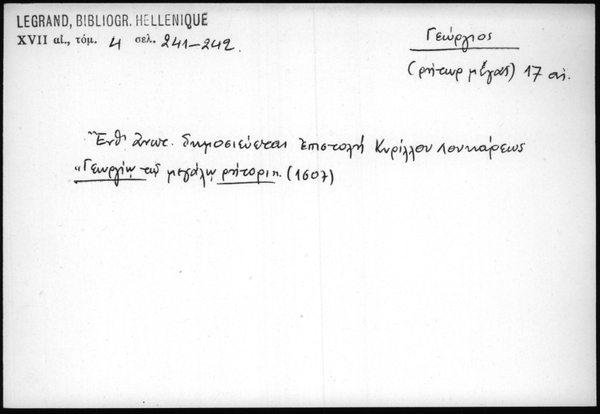 LEGRAND, BIBLIOGR. HELLENIQUE
XVII αἰ., τόμ. 4 σελ. 241–242.
Γεώργιος
(ρήτωρ μέγας) 17 αἰ.
Ἔνθ' ἀνωτ. δημοσιεύεται ἐπιστολή Κυρίλλου Λουκάρεως
"Γεωργίῳ τῷ μεγάλῳ ρήτορι". (1607)